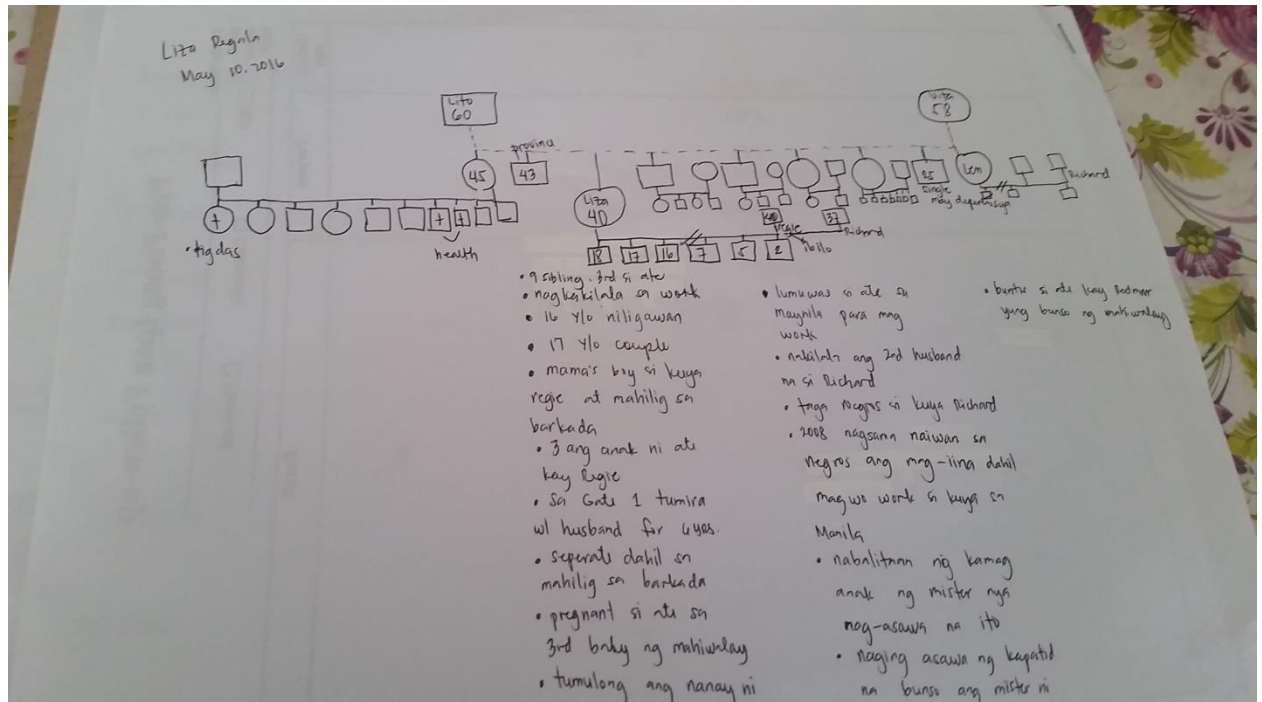 Liza Regala
May 10, 2016
Lito
60
58
province
45
43
Liza
40
25
Single
Len
may diperensya
Richard
+
+
+
• tigdas
health
37
Regie
Richard
18
17
16
7
5
2
• 9 sibling. 3rd si ate
• nagkakilala sa work
• 16 y/o niligawan
• 17 y/o couple
• mama's boy si kuya
regie at mahilig sa
barkada
• 3 ang anak ni ate
kay Regie
• Sa Gate 1 tumira
w/ husband for yrs.
• seperate dahil sa
mahilig sa barkada
• pregnant si ate sa
3rd baby ng mahiwalay
• tumulong ang nanay ni
• lumuwas si ate sa
maynila para mag
work
• nakilala ang 2nd husband
na si Richard
• taga Negros si kuya Richard
• 2008 nagsama naiwan sa
negros ang mag-iina dahil
magwo work si kuya sa
Manila
• nabalitaan ng kamag
anak ng mister nya
nag-asawa na ito
• naging asawa ng kapatid
na bunso ang mister ni
• buntis si ate kay
yung bunso ng mahiwalay